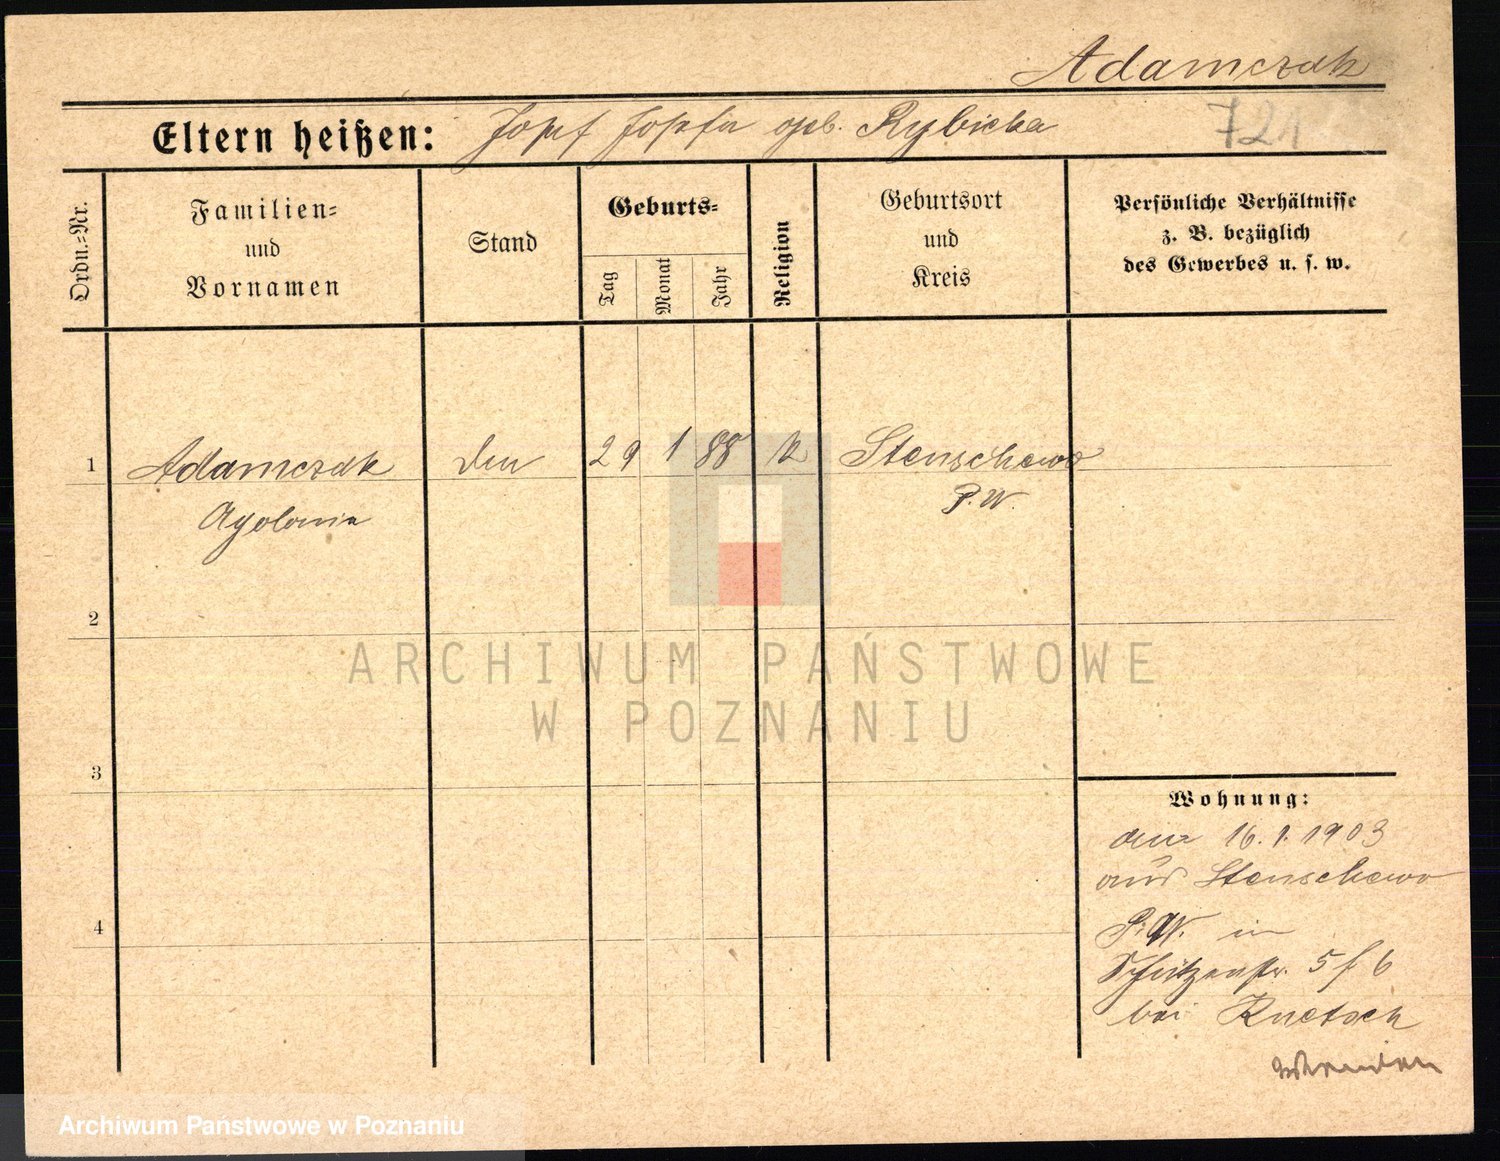 Adamczak
721
Eltern heißen: Josef Josefa geb. Rybicka
Ordn.-Nr.
Familien-
und
Vornamen
Stand
Geburts-
Tag
Monat
Jahr
Religion
Geburtsort
und
Kreis
Persönliche Verhältnisse
z. B. bezüglich
des Gewerbes u. s. w.
1 Adamczak 29 1 88 k Stenschewo
P. W.
Apolonia
2
3
4
Wohnung:
16. 1. 1903
aus Stenschewo
P. W. in
Schützenstr. 5 b
bei Knetsch
wenden
ARCHIWUM PAŃSTWOWE
W POZNANIU
Archiwum Państwowe w Poznaniu